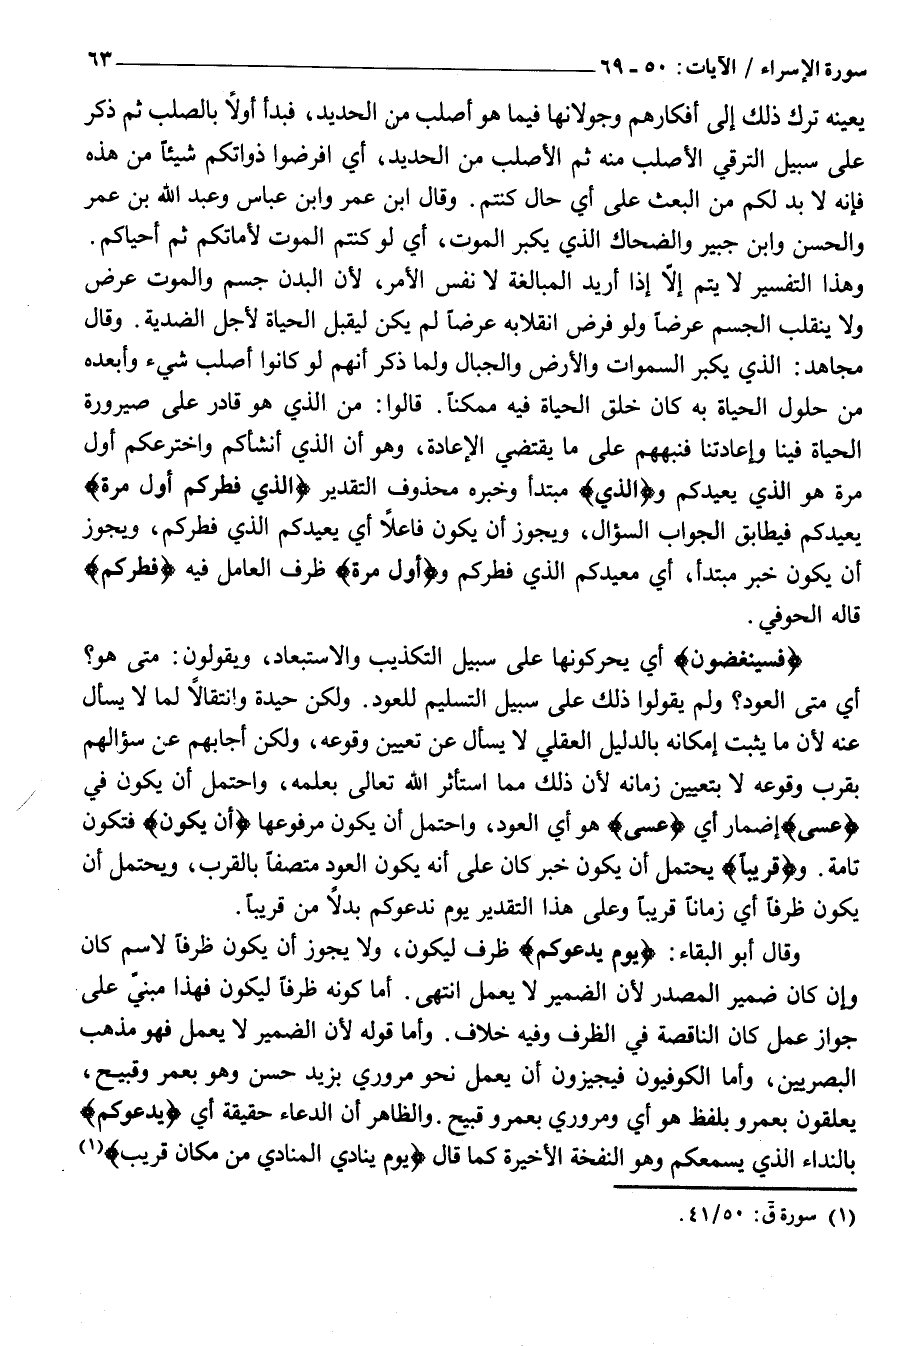 سورة الإسراء / الآيات: ٥٠ ـ ٦٩ ٦٣
يعينه ترك ذلك إلى أفكارهم وجولانها فيما هو أصلب من الحديد، فبدأ أولاً بالصلب ثم ذكر
على سبيل الترقي الأصلب منه ثم الأصلب من الحديد، أي افرضوا ذواتكم شيئاً من هذه
فإنه لا بد لكم من البعث على أي حال كنتم. وقال ابن عمر وابن عباس وعبد الله بن عمر
والحسن وابن جبير والضحاك الذي يكبر الموت، أي لو كنتم الموت لأماتكم ثم أحياكم.
وهذا التفسير لا يتم إلّا إذا أريد المبالغة لا نفس الأمر، لأن البدن جسم والموت عرض
ولا ينقلب الجسم عرضاً ولو فرض انقلابه عرضاً لم يكن ليقبل الحياة لأجل الضدية. وقال
مجاهد: الذي يكبر السموات والأرض والجبال ولما ذكر أنهم لو كانوا أصلب شيء وأبعده
من حلول الحياة به كان خلق الحياة فيه ممكناً. قالوا: من الذي هو قادر على صيرورة
الحياة فينا وإعادتنا فنبههم على ما يقتضي الإعادة، وهو أن الذي أنشأكم واخترعكم أول
مرة هو الذي يعيدكم و﴿الذي﴾ مبتدأ وخبره محذوف التقدير ﴿الذي فطركم أول مرة﴾
يعيدكم فيطابق الجواب السؤال، ويجوز أن يكون فاعلاً أي يعيدكم الذي فطركم، ويجوز
أن يكون خبر مبتدأ، أي معيدكم الذي فطركم و﴿أول مرة﴾ ظرف العامل فيه ﴿فطركم﴾
قاله الحوفي.
﴿فسينغضون﴾ أي يحركونها على سبيل التكذيب والاستبعاد، ويقولون: متى هو؟
أي متى العود؟ ولم يقولوا ذلك على سبيل التسليم للعود. ولكن حيدة وانتقالاً لما لا يسأل
عنه لأن ما يثبت إمكانه بالدليل العقلي لا يسأل عن تعيين وقوعه، ولكن أجابهم عن سؤالهم
بقرب وقوعه لا بتعيين زمانه لأن ذلك مما استأثر الله تعالى بعلمه، واحتمل أن يكون في
﴿عسى﴾إضمار أي ﴿عسى﴾ هو أي العود، واحتمل أن يكون مرفوعها ﴿أن يكون﴾ فتكون
تامة. و﴿قريباً﴾ يحتمل أن يكون خبر كان على أنه يكون العود متصفاً بالقرب، ويحتمل أن
يكون ظرفاً أي زماناً قريباً وعلى هذا التقدير يوم ندعوكم بدلاً من قريباً.
وقال أبو البقاء: ﴿يوم يدعوكم﴾ ظرف ليكون، ولا يجوز أن يكون ظرفاً لاسم كان
وإن كان ضمير المصدر لأن الضمير لا يعمل انتهى. أما كونه ظرفاً ليكون فهذا مبنيّ على
جواز عمل كان الناقصة في الظرف وفيه خلاف. وأما قوله لأن الضمير لا يعمل فهو مذهب
البصريين، وأما الكوفيون فيجيزون أن يعمل نحو مروري بزيد حسن وهو بعمر وقبيح،
يعلقون بعمرو بلفظ هو أي ومروري بعمرو قبيح.والظاهر أن الدعاء حقيقة أي ﴿يدعوكم﴾
بالنداء الذي يسمعكم وهو النفخة الأخيرة كما قال ﴿يوم ينادي المنادي من مكان قريب﴾(١)
(١) سورة قۤ: ٤١/٥٠.